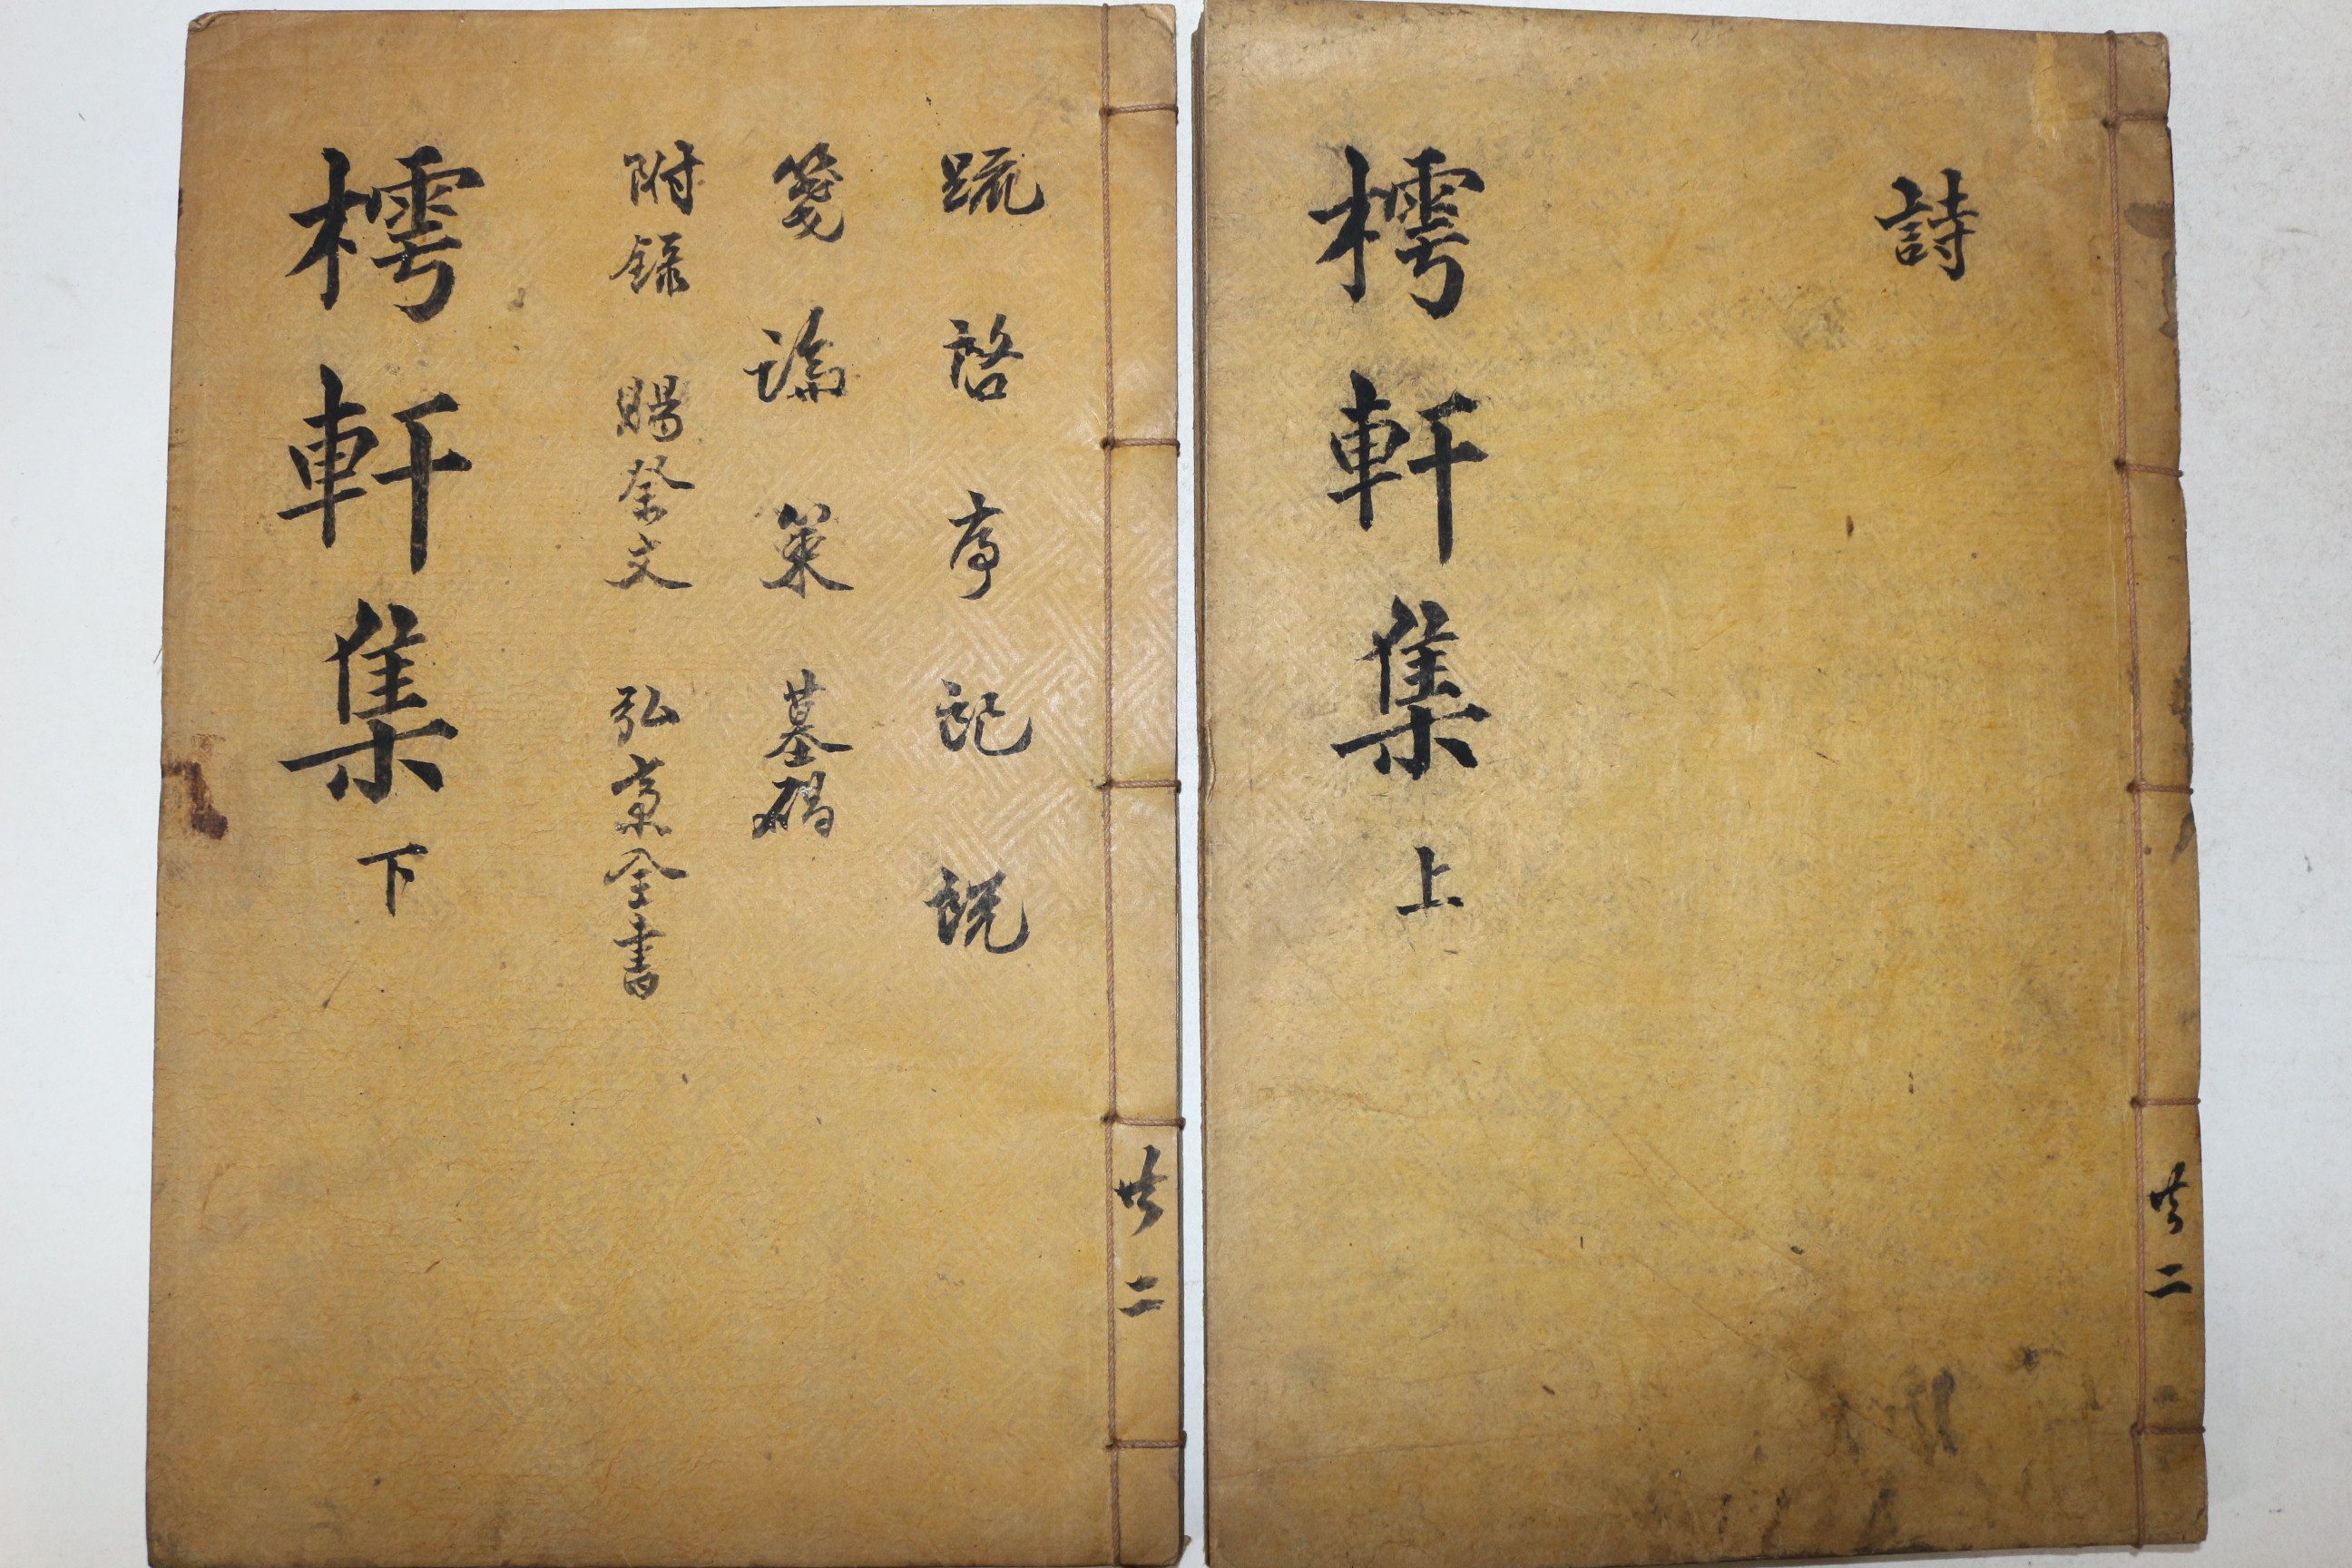 共二
詩
樗軒集 上
共二
䟽 啓 序 記 說
箋 論 策 墓碣
附錄 賜祭文 弘齋全書
樗軒集 下